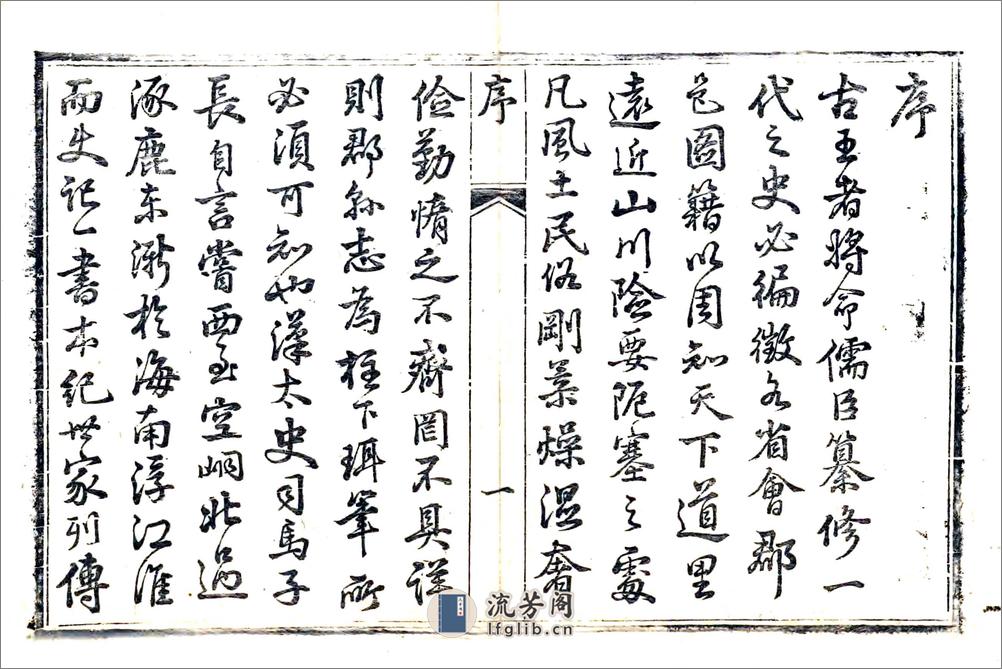 序
古王者將命儒臣纂修一
代之史必徧徵各省會郡
邑圖籍以周知天下道里
遠近山川險要阨塞之處
凡風土民俗剛柔燥濕奢
序
一
儉勤惰之不齊罔不具詳
則郡縣志為柱下珥筆所
必須可知也漢太史司馬子
長自言嘗西至空峒北過
涿鹿東漸於海南浮江淮
而史記一書本紀世家列傳
流芳阁
lfglib.cn